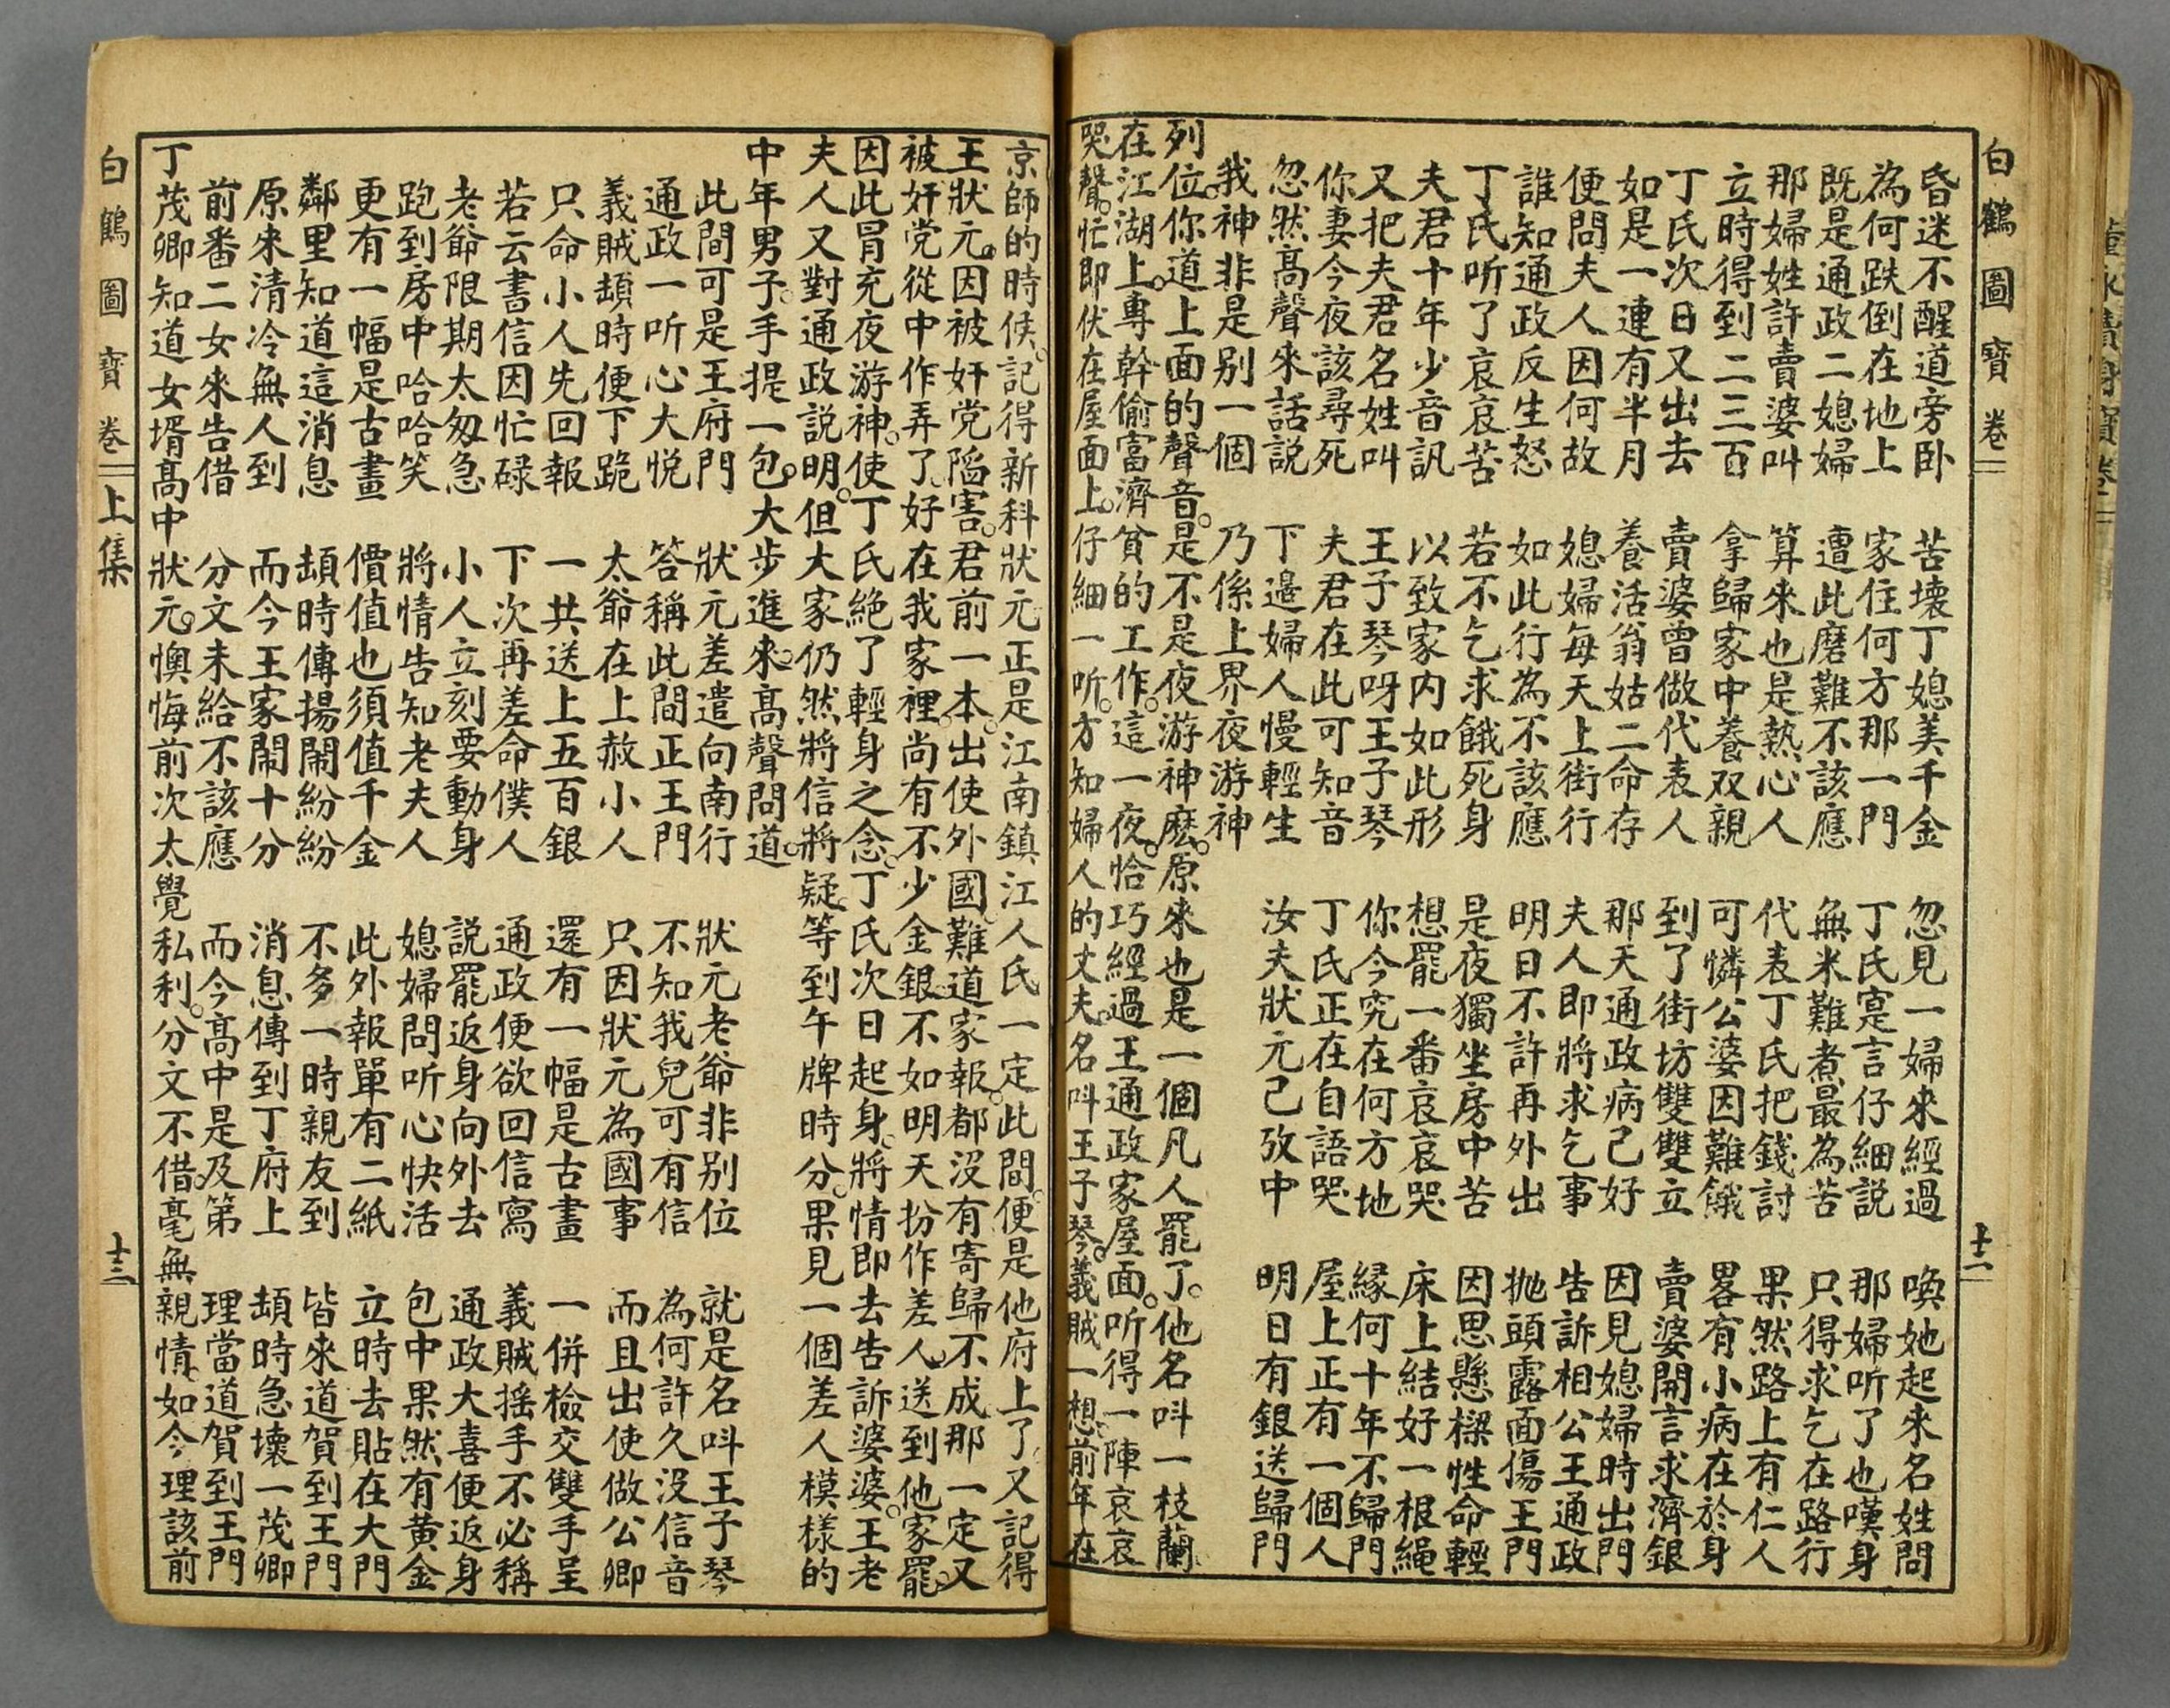 白鶴圖寶卷
昏迷不醒道旁卧　苦壞丁媳美千金　忽見一婦來經過　喚她起來名姓問
為何跌倒在地上　家住何方那一門　丁氏寔言仔細説　那婦听了也嘆身
既是通政二媳婦　遭此磨難不該應　無米難煮最為苦　只得求乞在路行
那婦姓許賣婆叫　算來也是熱心人　代表丁氏把錢討　果然路上有仁人
立時得到二三百　拿歸家中養双親　可憐公婆因難餓　畧有小病在於身
丁氏次日又出去　賣婆曾做代表人　到了街坊雙雙立　賣婆開言求濟銀
如是一連有半月　養活翁姑二命存　那天通政病己好　因見媳婦時出門
便問夫人因何故　媳婦每天上街行　夫人即將求乞事　告訴相公王通政
誰知通政反生怒　如此行為不該應　明日不許再外出　抛頭露面傷王門
丁氏听了哀哀苦　若不乞求餓死身　是夜獨坐房中苦　因思懸樑性命輕
夫君十年少音訊　以致家内如此形　想罷一番哀哀哭　床上結好一根繩
又把夫君名姓叫　王子琴呀王子琴　你今究在何方地　緣何十年不歸門
你妻今夜該尋死　夫君在此可知音　丁氏正在自語哭　屋上正有一個人
忽然高聲來話説　下邉婦人慢輕生　汝夫狀元己攷中　明日有銀送歸門
我神非是别一個　乃係上界夜游神
列位。你道上面的聲音。是不是夜游神麽。原來也是一個凡人罷了。他名呌一枝蘭。
在江湖上。專幹偷富濟貧的工作。這一夜。恰巧經過王通政家屋面。听得一陣哀哀
哭聲。忙即伏在屋面上。仔細一听。方知婦人的丈夫。名呌王子琴。義賊一想。前年在
十二
京師的時侯。記得新科狀元。正是江南鎮江人氏。一定此間。便是他府上了。又記得
王狀元。因被奸党陷害。君前一本。出使外國。難道家報。都沒有寄歸。不成那一定又
被奸党從中作弄了。好在我家裡。尚有不少金銀。不如明天扮作差人。送到他家罷。
因此冒充夜游神。使丁氏絶了輕身之念。丁氏次日起身。將情即去告訴婆婆。王老
夫人又對通政説明。但大家仍然將信將疑。等到午牌時分。果見一個差人模樣的
中年男子。手提一包。大步進來。高聲問道。
此間可是王府門　狀元差遣向南行　狀元老爺非别位　就是名呌王子琴
通政一听心大悦　答稱此間正王門　不知我兒可有信　為何許久沒信音
義賊頡時便下跪　太爺在上赦小人　只因狀元為國事　而且出使做公卿
只命小人先回報　一共送上五百銀　還有一幅是古畫　一併檢交雙手呈
若云書信因忙碌　下次再差命僕人　通政便欲回信寫　義賊揺手不必稱
老爺限期太匆急　小人立刻要動身　説罷返身向外去　通政大喜便返身
跑到房中哈哈笑　將情告知老夫人　媳婦問听心快活　包中果然有黄金
更有一幅是古畫　價值也須值千金　此外報單有二紙　立時去貼在大門
鄰里知道這消息　頡時傳揚閙紛紛　不多一時親友到　皆來道賀到王門
原來清冷無人到　而今王家閙十分　消息傳到丁府上　頡時急壞一茂卿
前番二女來告借　分文未給不該應　而今高中是及第　理當道賀到王門
丁茂卿知道女壻高中狀元。懊悔前次太覺私利。分文不借。毫無親情。如今理該前
白鶴圖寶卷　上集
十三